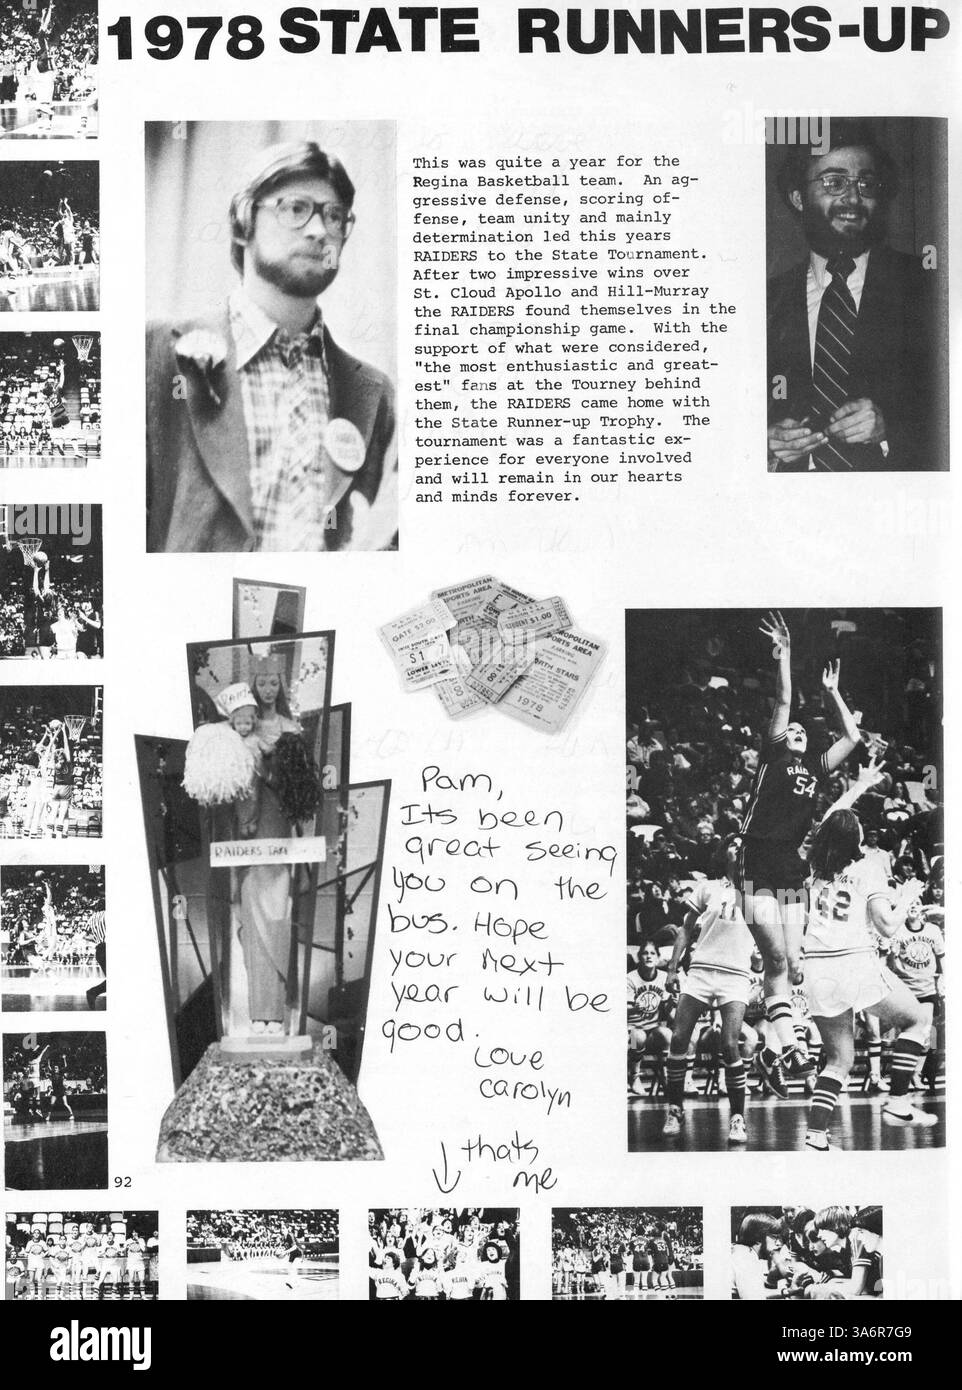 1978 STATE RUNNERS-UP
This was quite a year for the
Regina Basketball team. An ag-
gressive defense, scoring of-
fense, team unity and mainly
determination led this years
RAIDERS to the State Tournament.
After two impressive wins over
St. Cloud Apollo and Hill-Murray
the RAIDERS found themselves in the
final championship game. With the
support of what were considered,
"the most enthusiastic and great-
est" fans at the Tourney behind
them, the RAIDERS came home with
the State Runner-up Trophy. The
tournament was a fantastic ex-
perience for everyone involved
and will remain in our hearts
and minds forever.
METROPOLITAN
SPORTS AREA
PARKING
GATE $2.00
STUDENT $1.00
METROPOLITAN
SPORTS AREA
PARKING
NORTH STARS
1978
RAIDERS TAKE
Pam,
Its been
great seeing
you on the
bus. Hope
your next
year will be
good.
Love
Carolyn
↓ thats
me
54
42
11
REGINA
92
alamy
Image ID: 3A6R7G9
www.alamy.com